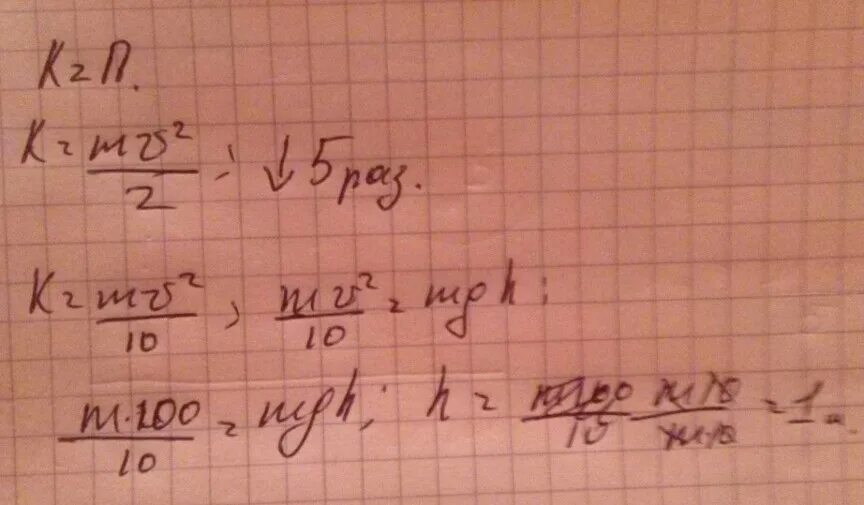 K = П.
K = mv²/2 ; ↓ 5 раз.
K = mv²/10 ; mv²/10 = mgh ;
m·100/10 = mgh ; h = m10/m10 = 1